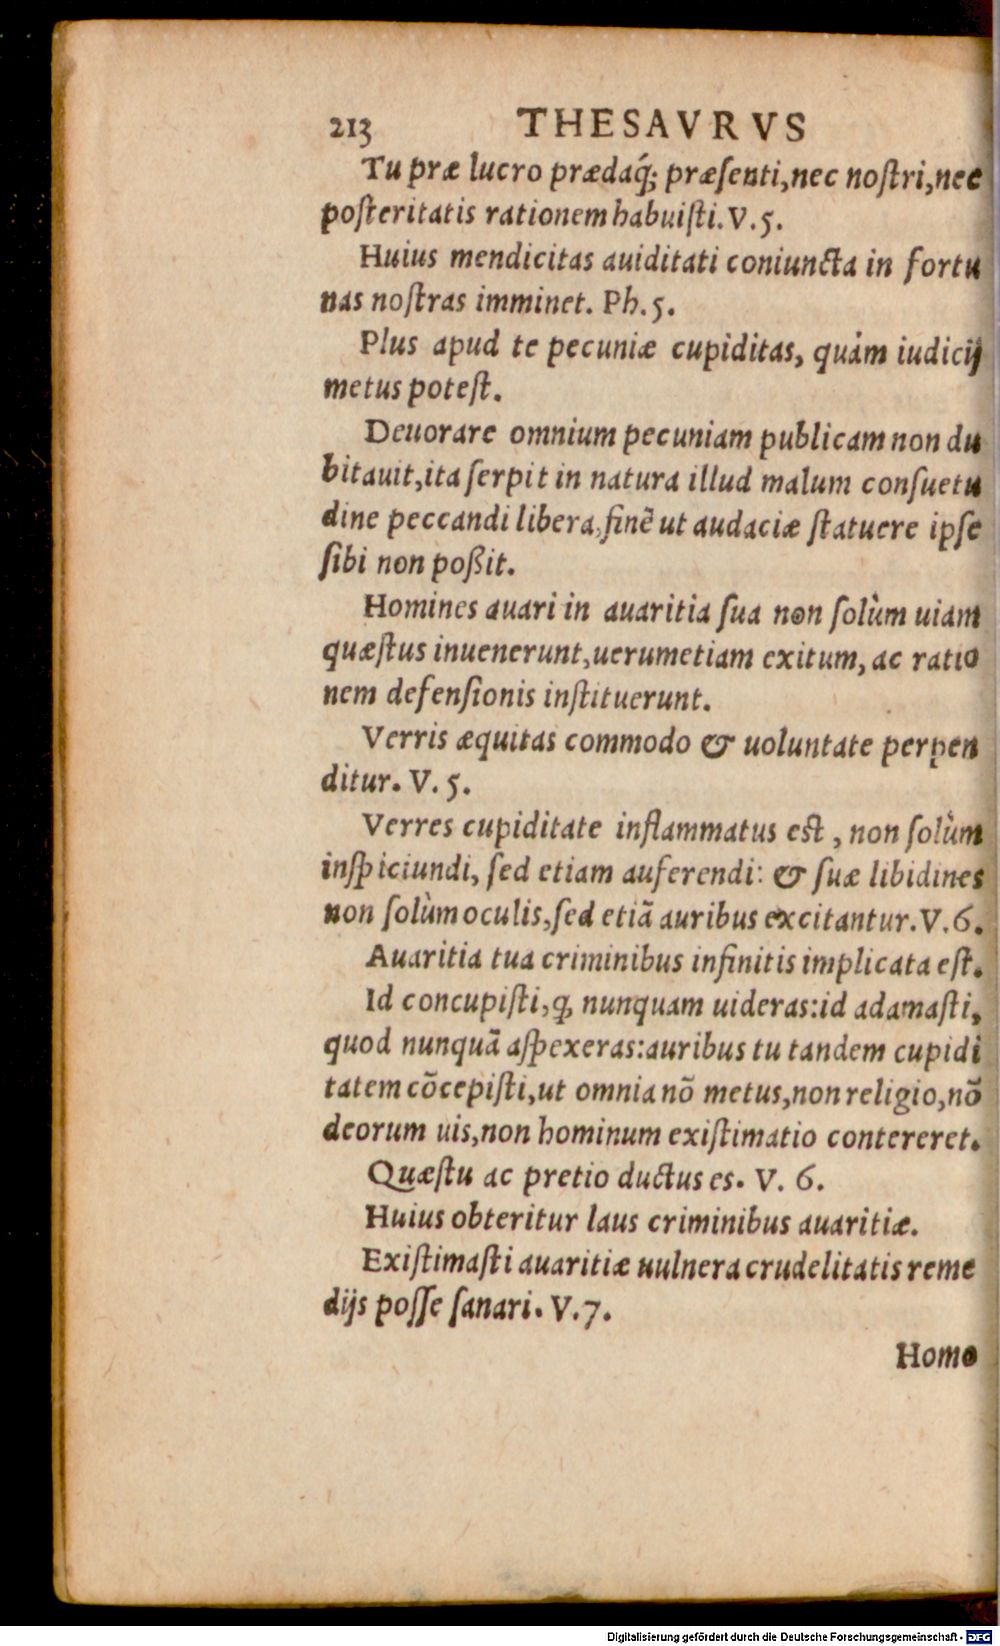 213 THESAVRVS
Tu præ lucro prædaq́; præſenti,nec noſtri,nec
poſteritatis rationem habuiſti.V.5.
Huius mendicitas auiditati coniuncta in fortu
nas noſtras imminet. Ph.5.
Plus apud te pecuniæ cupiditas, quàm iudicij
metus poteſt.
Deuorare omnium pecuniam publicam non du
bitauit,ita ſerpit in natura illud malum conſuetu
dine peccandi libera,finẽ ut audaciæ ſtatuere ipſe
ſibi non poßit.
Homines auari in auaritia ſua non ſolùm uiam
quæſtus inuenerunt,uerumetiam exitum, ac ratio
nem defenſionis inſtituerunt.
Verris æquitas commodo & uoluntate perpen
ditur. V. 5.
Verres cupiditate inflammatus eſt, non ſolùm
inſpiciundi, ſed etiam auferendi: & ſuæ libidines
non ſolùm oculis,ſed etiã auribus excitantur.V.6.
Auaritia tua criminibus infinitis implicata eſt.
Id concupiſti,q̨ nunquam uideras:id adamaſti,
quod nunquã aſpexeras:auribus tu tandem cupidi
tatem cõcepiſti,ut omnia nõ metus,non religio,nõ
deorum uis,non hominum exiſtimatio contereret.
Quæſtu ac pretio ductus es. V. 6.
Huius obteritur laus criminibus auaritiæ.
Exiſtimaſti auaritiæ uulnera crudelitatis reme
dijs poſſe ſanari. V.7.
Homo
Digitalisierung gefördert durch die Deutsche Forschungsgemeinschaft - DFG